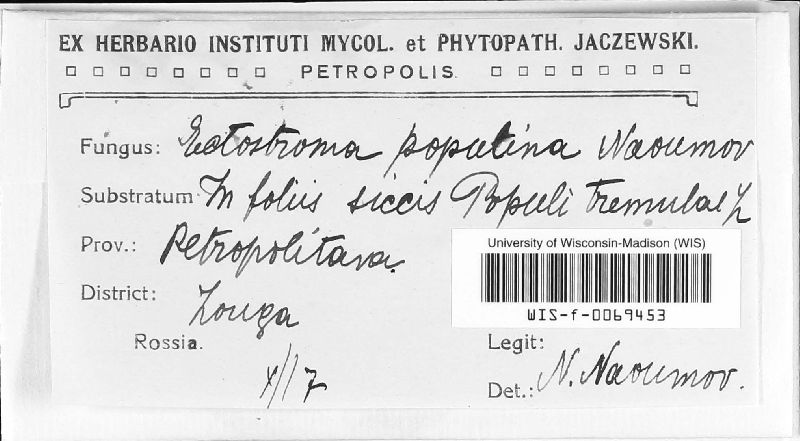 EX HERBARIO INSTITUTI MYCOL. et PHYTOPATH. JACZEWSKI.
PETROPOLIS.
Fungus: Ectostroma populina Naoumov
Substratum: In foliis siccis Populi tremulae L
Prov.: Petropolitava.
District: Louga
Rossia.
University of Wisconsin-Madison (WIS)
WIS-f-0069453
Legit:
Det.: N. Naoumov.